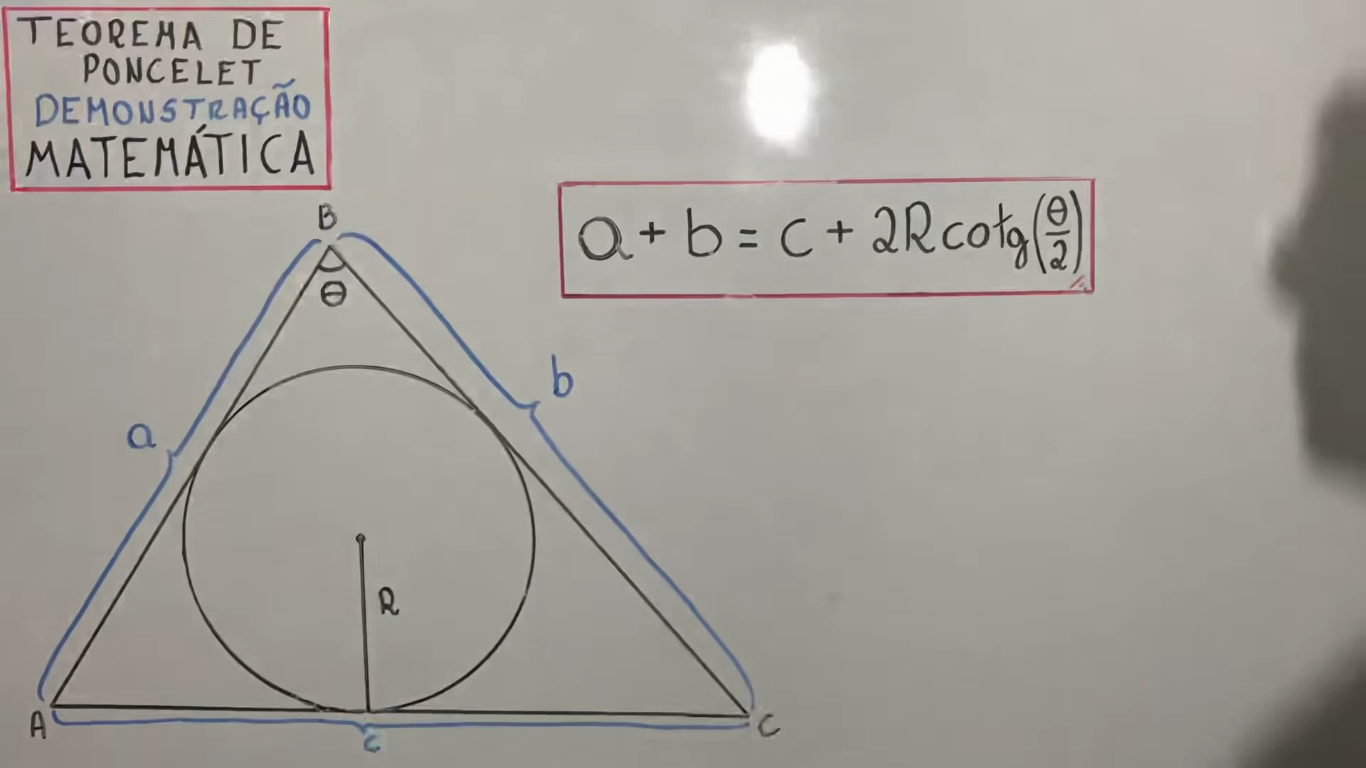 TEOREMA DE
PONCELET
DEMONSTRAÇÃO
MATEMÁTICA
a + b = c + 2R cotg(θ/2)
B
θ
a
b
R
A
c
C